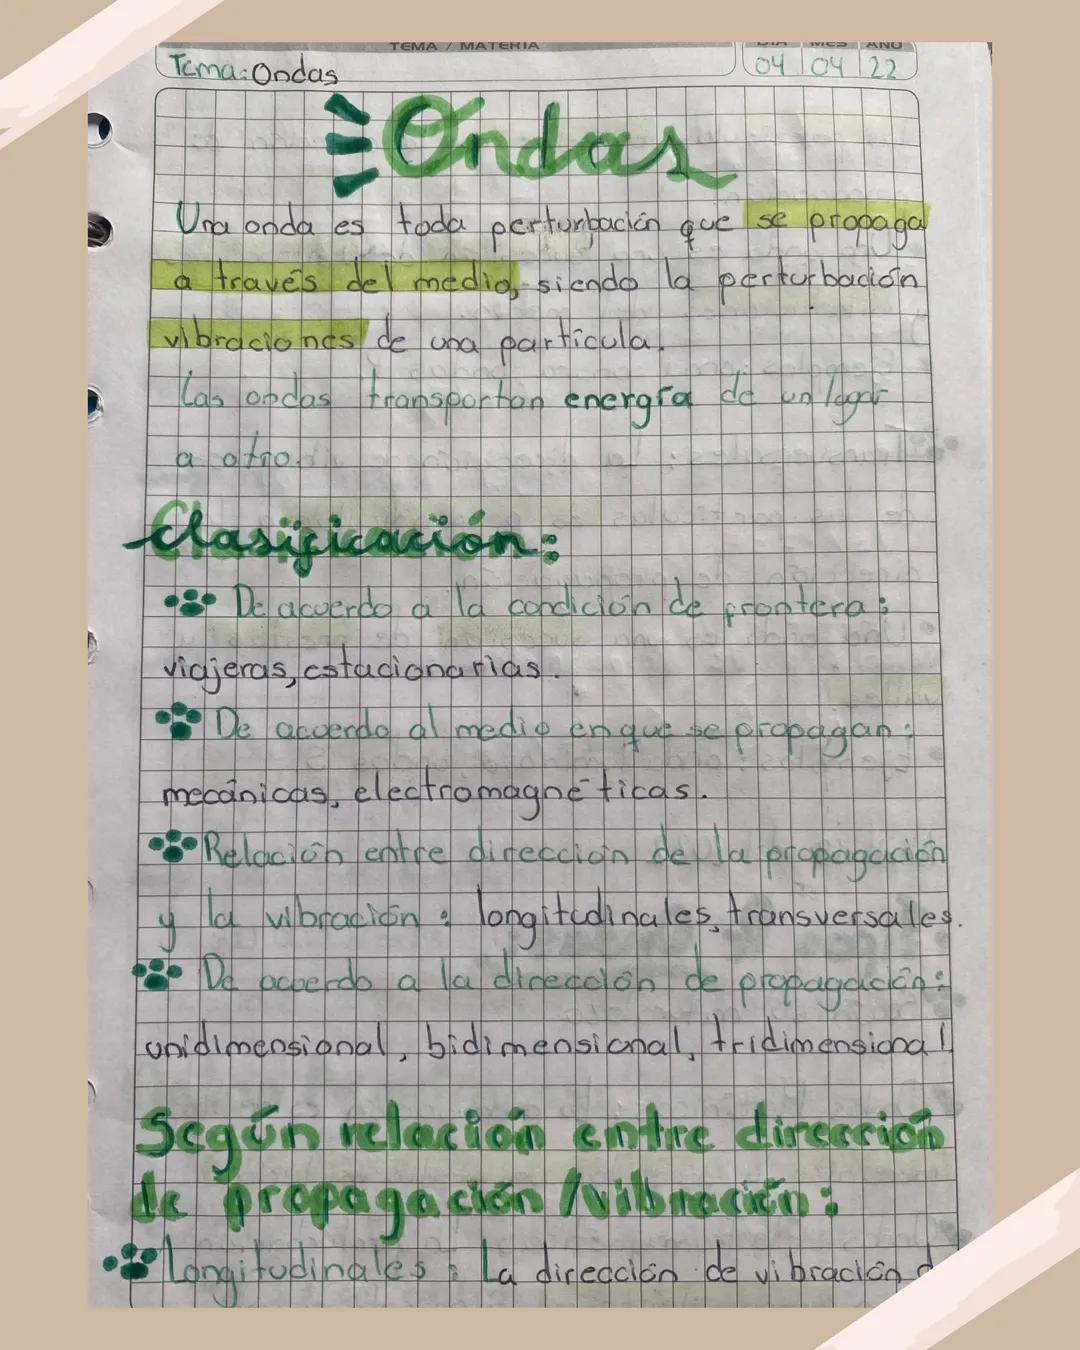 TEMA / MATERIA
DIA MES AÑO
Tema: Ondas
04 04 22
Ondas
Una onda es toda perturbación que se propaga
a través del medio, siendo la perturbación
vibraciones de una partícula.
Las ondas transportan energía de un lugar
a otro.
Clasificación:
De acuerdo a la condición de frontera:
viajeras, estacionarias.
De acuerdo al medio en que se propagan:
mecánicas, electromagnéticas.
Relación entre dirección de la propagación
y la vibración: longitudinales, transversales.
De acuerdo a la dirección de propagación:
unidimensional, bidimensional, tridimensional
Según relación entre dirección
de propagación /vibración:
Longitudinales: La dirección de vibración d